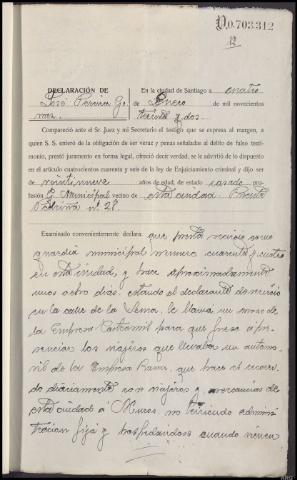 D.0.703.312
12
DECLARACIÓN DE
José Pereira Gó-
mez
En la ciudad de Santiago a cuatro
de Enero de mil novecientos
treinta y dos.
Compareció ante el Sr. Juez y mi Secretario el testigo que se expresa al margen, a
quien S. S. enteró de la obligación de ser veraz y penas señaladas al delito de falso testi-
monio, prestó juramento en forma legal, ofreció decir verdad, se le advirtió de lo dispuesto
en el artículo cuatrocientos cuarenta y seis de la ley de Enjuiciamiento criminal y dijo ser
de veintinueve años de edad, de estado casado pro-
fesión G. Municipal vecino de esta ciudad
nº 28.
Examinado convenientemente declara: que presta servicio como
guardia municipal número cuarenta y cuatro
en esta ciudad, y hace aproximadamente
unos ocho dias, estando el declarante de servicio
en la calle de la Senra, le llamó un mozo de
la Empresa Castromil para que fuese a pre-
senciar los viajeros que llevaba un automo-
vil de la Empresa, que hace el recorri-
do diariamente con viajeros y mercancias de
esta ciudad a Muros, no teniendo adminis-
tracion fija y hospedandose cuando vienen